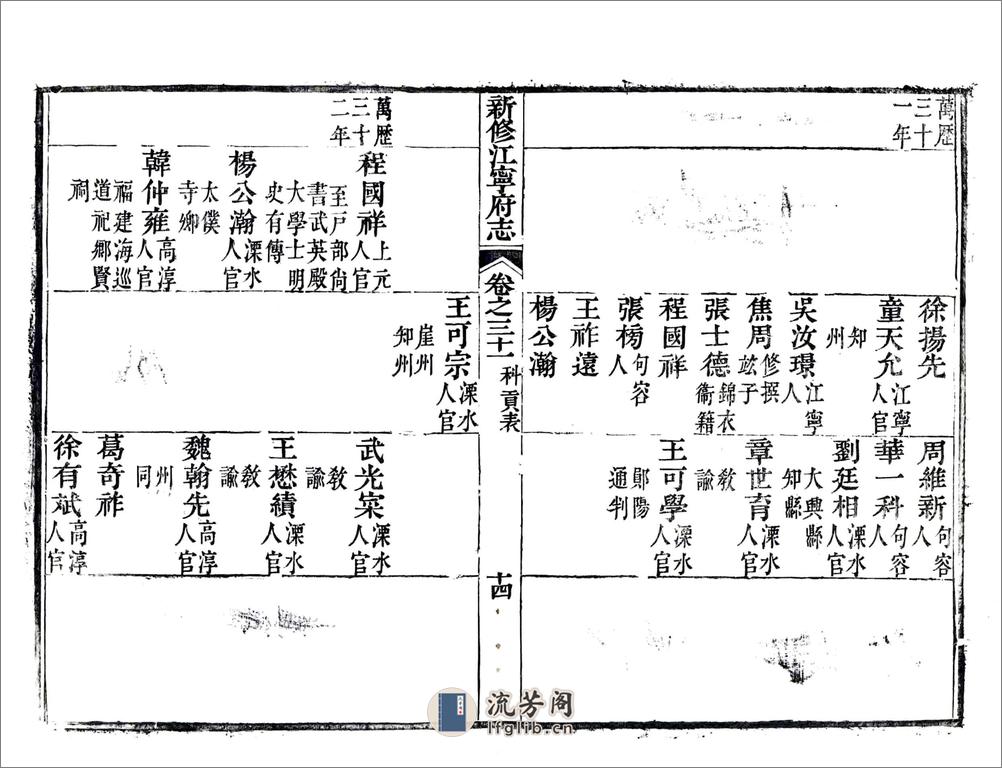 萬歷三十一年
徐揚先
童天允 江寧人官知州
吳汝璟 江寧人
焦周 修撰竑子
張士德 錦衣衛籍
程國祥
張 句容人
王祚遠
楊公瀚
周維新 句容人
華一科 句容人
劉廷相 溧水人官大興縣知縣
章世育 溧水人官教諭
王可學 溧水人官鄖陽通判
新修江寧府志 卷之三十一 科貢表 十四
萬歷三十二年
程國祥 上元人官至戶部尚書武英殿大學士明史有傳
楊公瀚 溧水人官太僕寺卿
韓仲雍 高淳人官福建海巡道祀鄉賢祠
王可宗 溧水人官崖州知州
武光寀 溧水人官教諭
王懋績 溧水人官教諭
魏翰先 高淳人官州同
葛奇祚
徐有斌 高淳人官
流芳阁
lfglib.cn